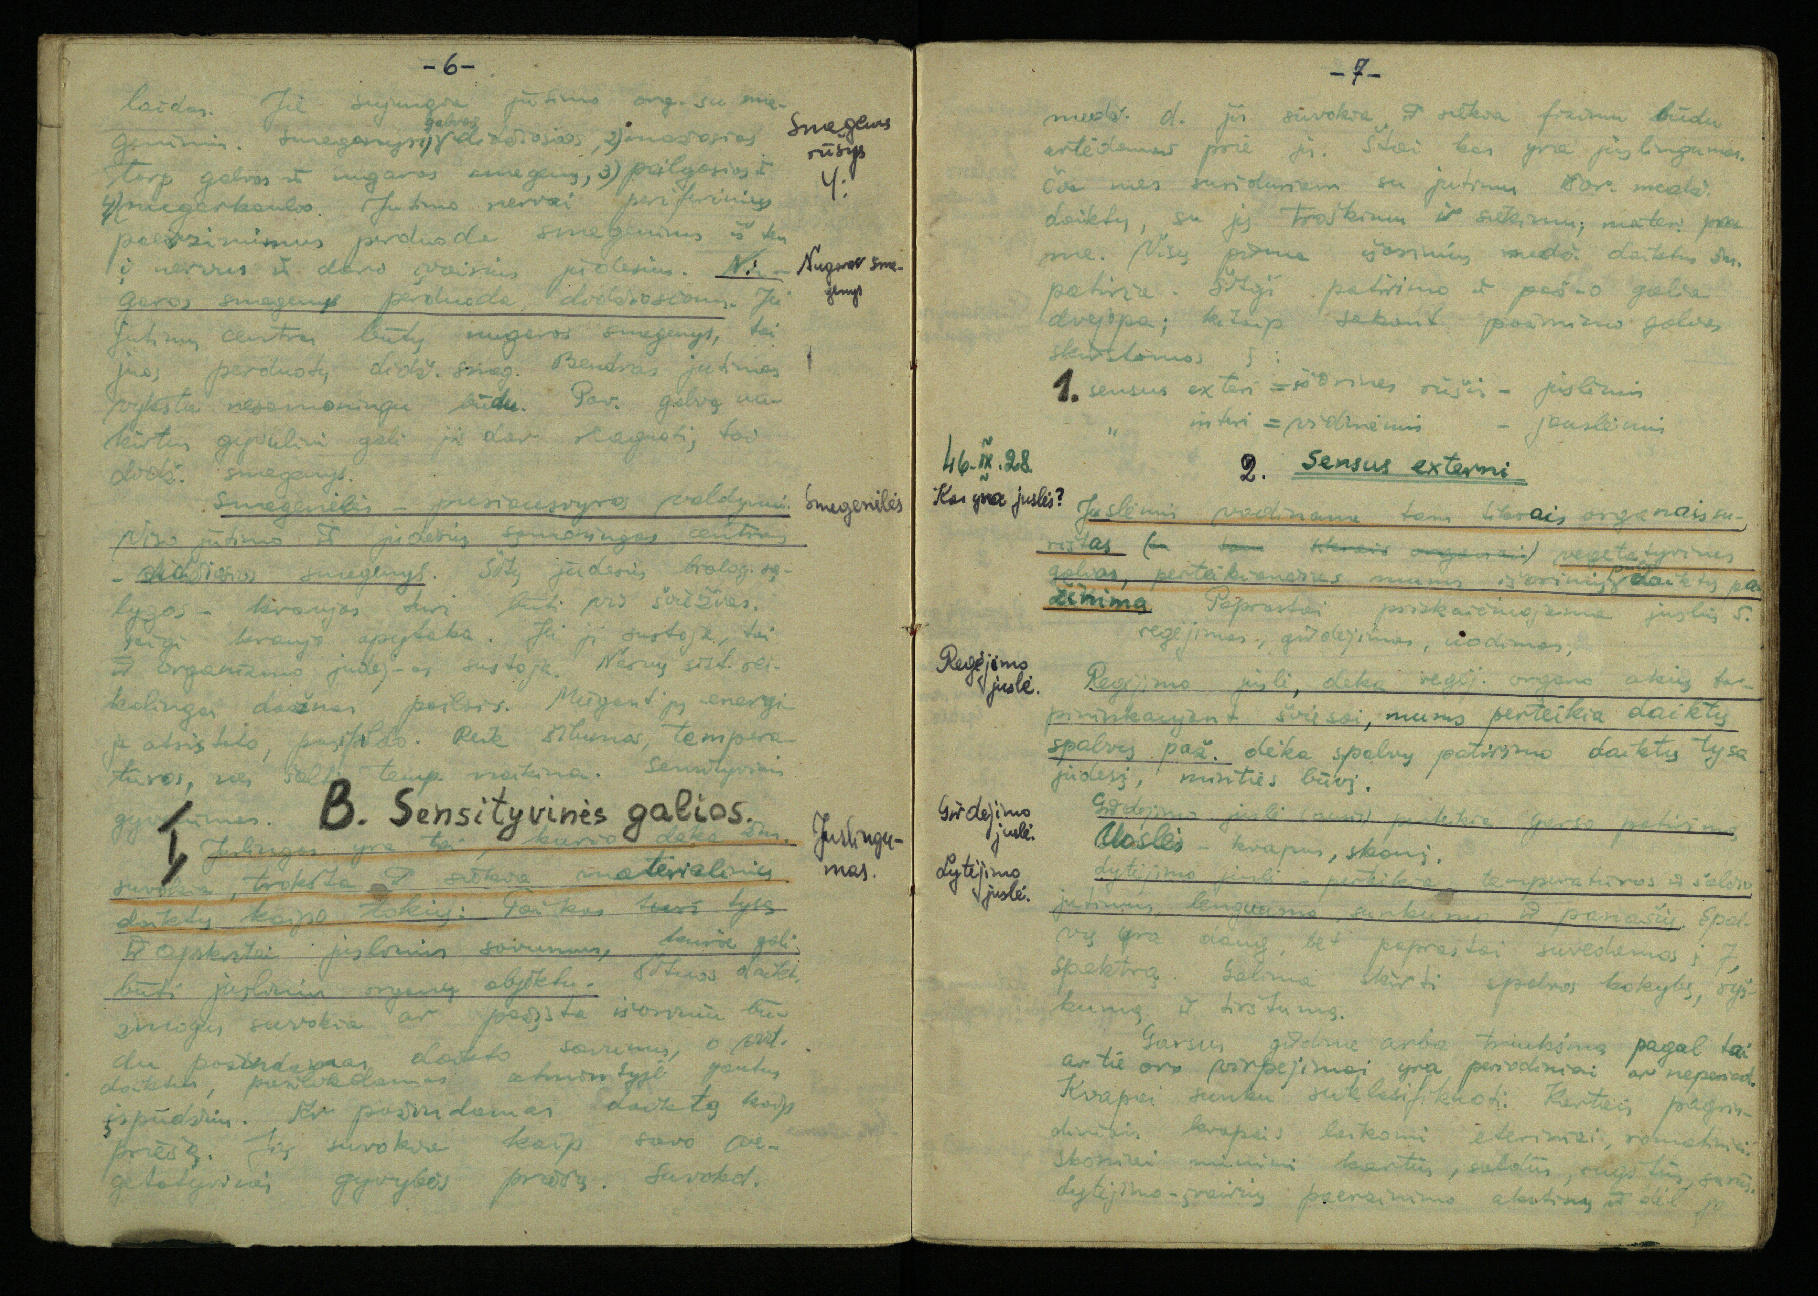 -6-
laidas. Jie sujungia jutimo org. su sme-
genimis. Smegenys: 1) galvos didžiosios, 2) mažosios
tarp galvos ir nugaros smegenų, 3) pailgosios ir
4) nugarkaulio. Jutimo nervai periferinius
paerzinimus perduoda smegenims iš ten
į nervus ir daro įvairius judesius. Nu-
garos smegenys perduoda didžiosioms. Jei
jutimų centras būtų nugaros smegenys, tai
juos perduotų didž. smeg. Bendras jutimas
vyksta nesąmoningu būdu. Pav. galvą nu-
kirtus gyvuliui gali jis dar reaguoti, tai
didž. smegenys.
Smegenėlės - pusiausvyros valdymui.
Viso jutimo ir judesių sąmoningas centras
- didžiosios smegenys. Šitų judesių biolog. są-
lygos - kraujas turi būti vis šviežias.
taigi kraujo apytaka. Jei ji sustoja, tai
ir organizmo judėj-as sustoja. Nervų sist. rei-
kalingas dažnas poilsis. Miegant jų energi-
ja atsistato, pasipildo. Reik šiluma, tempera-
tūros, nes šalt. temp. naikina. Sensityviais
gyvūnas.
B. Sensityvinės galios.
1. Juslingas yra tai, kurio dėka žm.
suvokia, trokšta ir siekia materialinių
daiktų kaipo tokių: Taikos turi tysą
ir apskritai juslinius savumus, kurie gali
būti juslinių organų objektu. Šituos daikt.
žmogus suvokia ar pažįsta išoriniu bū-
du pasiduodamas daikto savumus, o vid.
daiktus, pasilikdamas atmintyje gautus
įspūdžius. Ar pažindamas daiktą kaip
priešą. Jis suvokia kaip savo ve-
getatyvinės gyvybės priešą. Suvokd.
Smegenų
rūšys
4:
Nugaros sme-
genys
Smegenėlės
Juslingu-
mas.
-7-
medž. d. jis suvokia ir siekia fiziniu būdu
artėdamas prie jų. Štai kas yra juslingumas.
Čia mes susiduriam su jutimu išor. medž.
daiktų, su jų troškimu ir siekimu;
me. Visų pirma išorinius medž. daiktus žm.
patiria. Šitoji patirimo ir paž-o galia
dvejopa; kitaip sakant pažinimo galios
skirstomos į:
1. sensus exteri = išorines rūšis - juslėmis
" interi = vidinėmis - jauslėmis
46-IX.28.
2. Sensus externi
Kas yra juslės?
Juslėmis vadiname tam tikrais organais su-
rištas (su tam tikrais organais) vegetatyvines
galias, perteikiančias mums išorinių daiktų pa-
žinimą. Paprastai priskaičiuojama juslių 5.
regėjimas, girdėjimas, uodimas,
Regėjimo
juslė.
Regėjimo juslė, dėka regėj. organo akių tar-
pininkaujant šviesai, mums perteikia daiktų
spalvų paž. dėka spalvų patirimo daiktų tysą
judesį, rimties būvį.
Girdėjimo
juslė.
Girdėjimo juslė (ausis) perteikia garso patirimą
Uoslės - kvapus, skonį.
Lytėjimo
juslė.
Lytėjimo juslė - perteikia temperatūros ir šalčio
jutimus, lengvumo, sunkumo ir panašių. Spal-
vų yra daug, bet paprastai suvedamos į 7,
spektrą. Galima skirti spalvos kokybę, ryš-
kumą ir tirštumą.
Garsus girdime arba triukšmą pagal tai
ar tie oro virpėjimai yra periodiniai ar neperiod.
Kvapai sunku suklasifikuoti. Kartais pagrin-
diniais kvapais laikomi eteriniai, romatiniai.
Skoniai minimi kartūs, saldūs, rūgštūs, sūrūs.
Lytėjimo - įvairių paerzinimo akstinų ir dėl jo